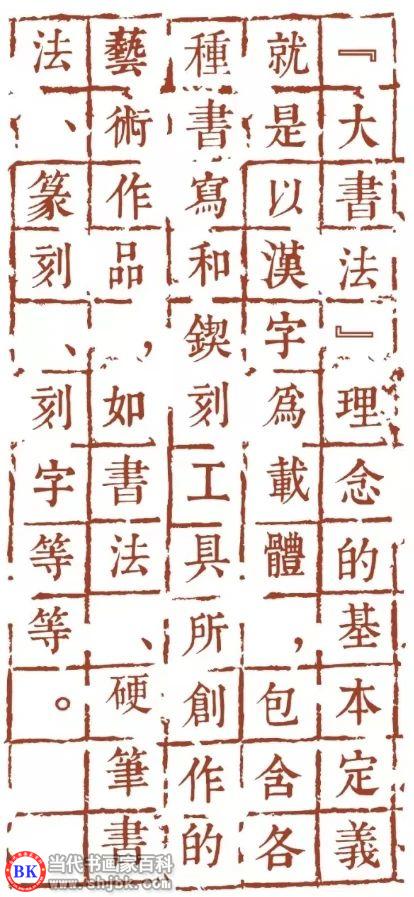 『大書法』理念的基本定義
就是以漢字爲載體，包含各
種書寫和鍥刻工具所創作的
藝術作品，如書法、硬筆書
法、篆刻、刻字等等。
BK
当代书画家百科
www.shjbk.com